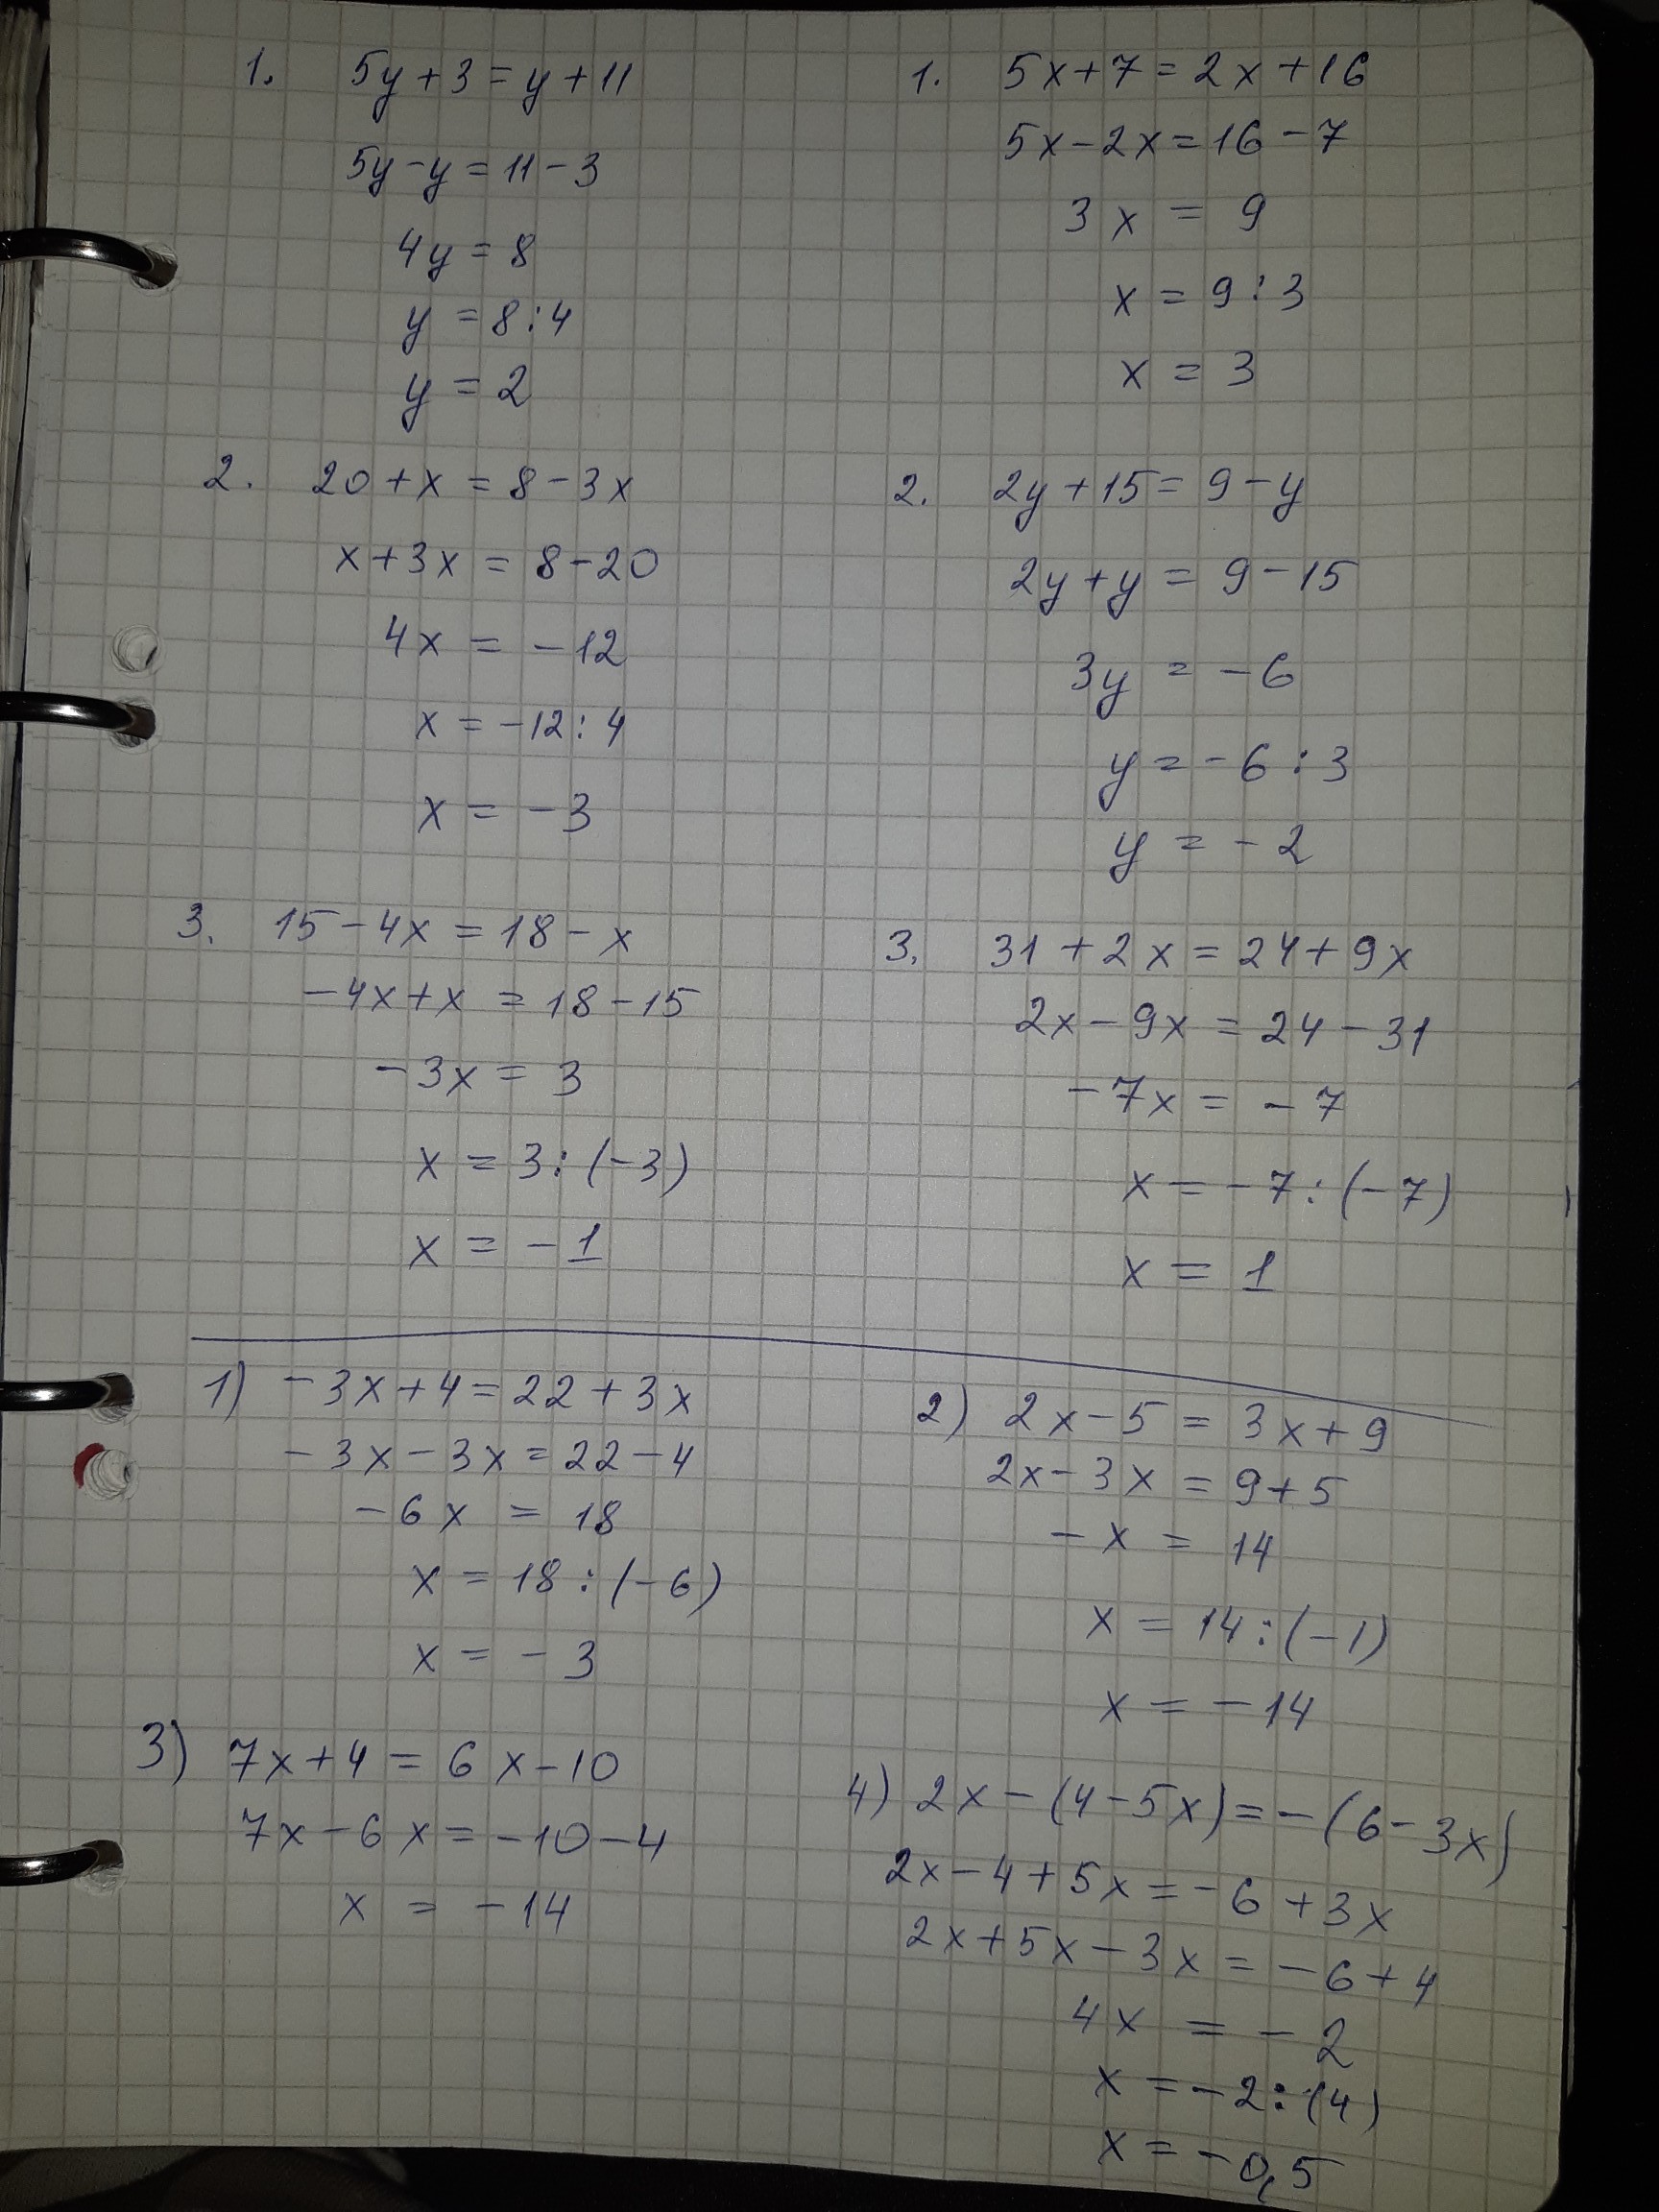 1. 5y+3=y+11
5y-y=11-3
4y=8
y=8:4
y=2
2. 20+x=8-3x
x+3x=8-20
4x=-12
x=-12:4
x=-3
3. 15-4x=18-x
-4x+x=18-15
-3x=3
x=3:(-3)
x=-1
1. 5x+7=2x+16
5x-2x=16-7
3x=9
x=9:3
x=3
2. 2y+15=9-y
2y+y=9-15
3y=-6
y=-6:3
y=-2
3. 31+2x=24+9x
2x-9x=24-31
-7x=-7
x=-7:(-7)
x=1
1) -3x+4=22+3x
-3x-3x=22-4
-6x=18
x=18:(-6)
x=-3
2) 2x-5=3x+9
2x-3x=9+5
-x=14
x=14:(-1)
x=-14
3) 7x+4=6x-10
7x-6x=-10-4
x=-14
4) 2x-(4-5x)=-(6-3x)
2x-4+5x=-6+3x
2x+5x-3x=-6+4
4x=-2
x=-2:(4)
x=-0,5